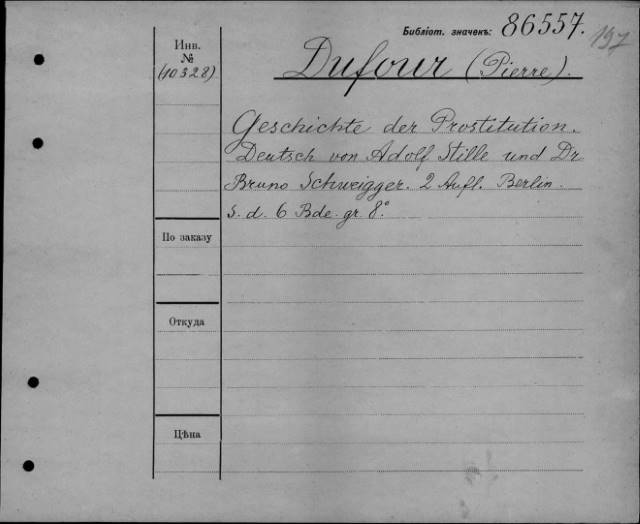 Библіот. значекъ: 86557. 197
Инв.
№
(10328)
Dufour (Pierre).
Geschichte der Prostitution.
Deutsch von Adolf Stille und Dr
Bruno Schweigger. 2 Aufl. Berlin.
s. d. 6 Bde. gr. 8°.
По заказу
Откуда
Цѣна